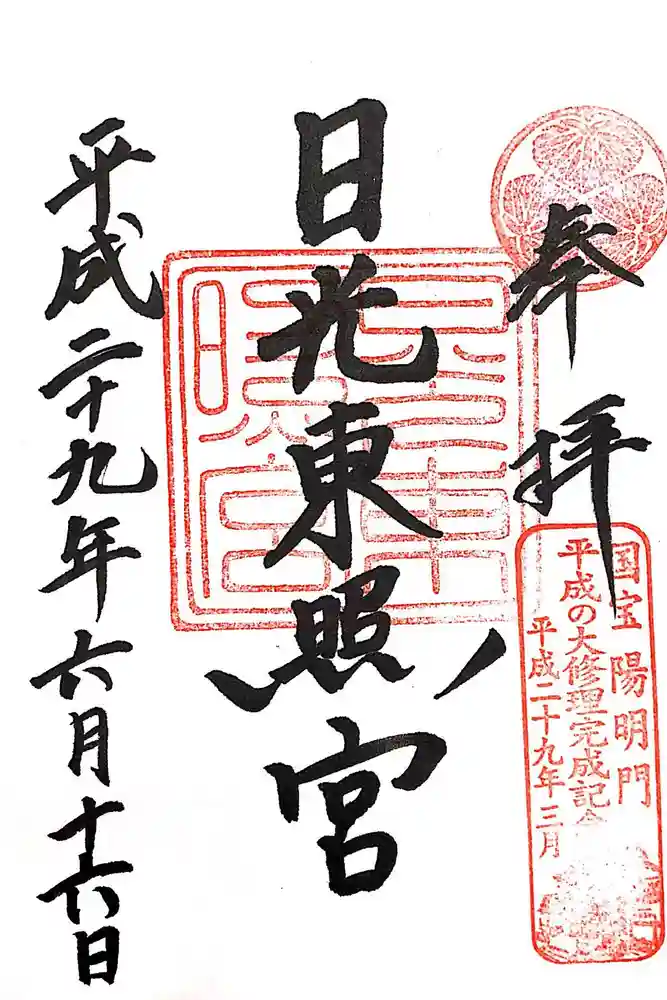 奉拝
国宝 陽明門
平成の大修理完成記念
平成二十九年三月
日光東照宮
平成二十九年六月十六日